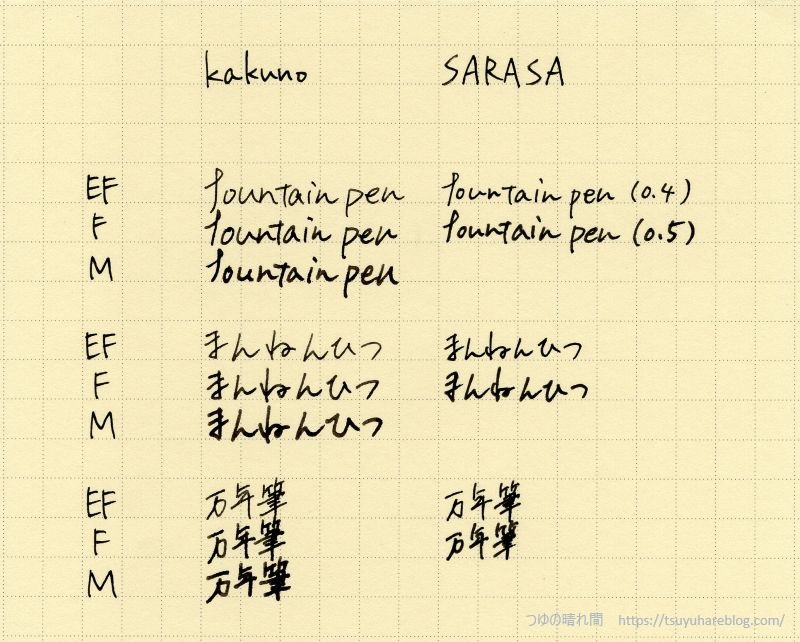 kakuno SARASA
EF fountain pen fountain pen (0.4)
F fountain pen fountain pen (0.5)
M fountain pen
EF まんねんひつ まんねんひつ
F まんねんひつ まんねんひつ
M まんねんひつ
EF 万年筆 万年筆
F 万年筆 万年筆
M 万年筆
つゆの晴れ間 https://tsuyuhareblog.com/